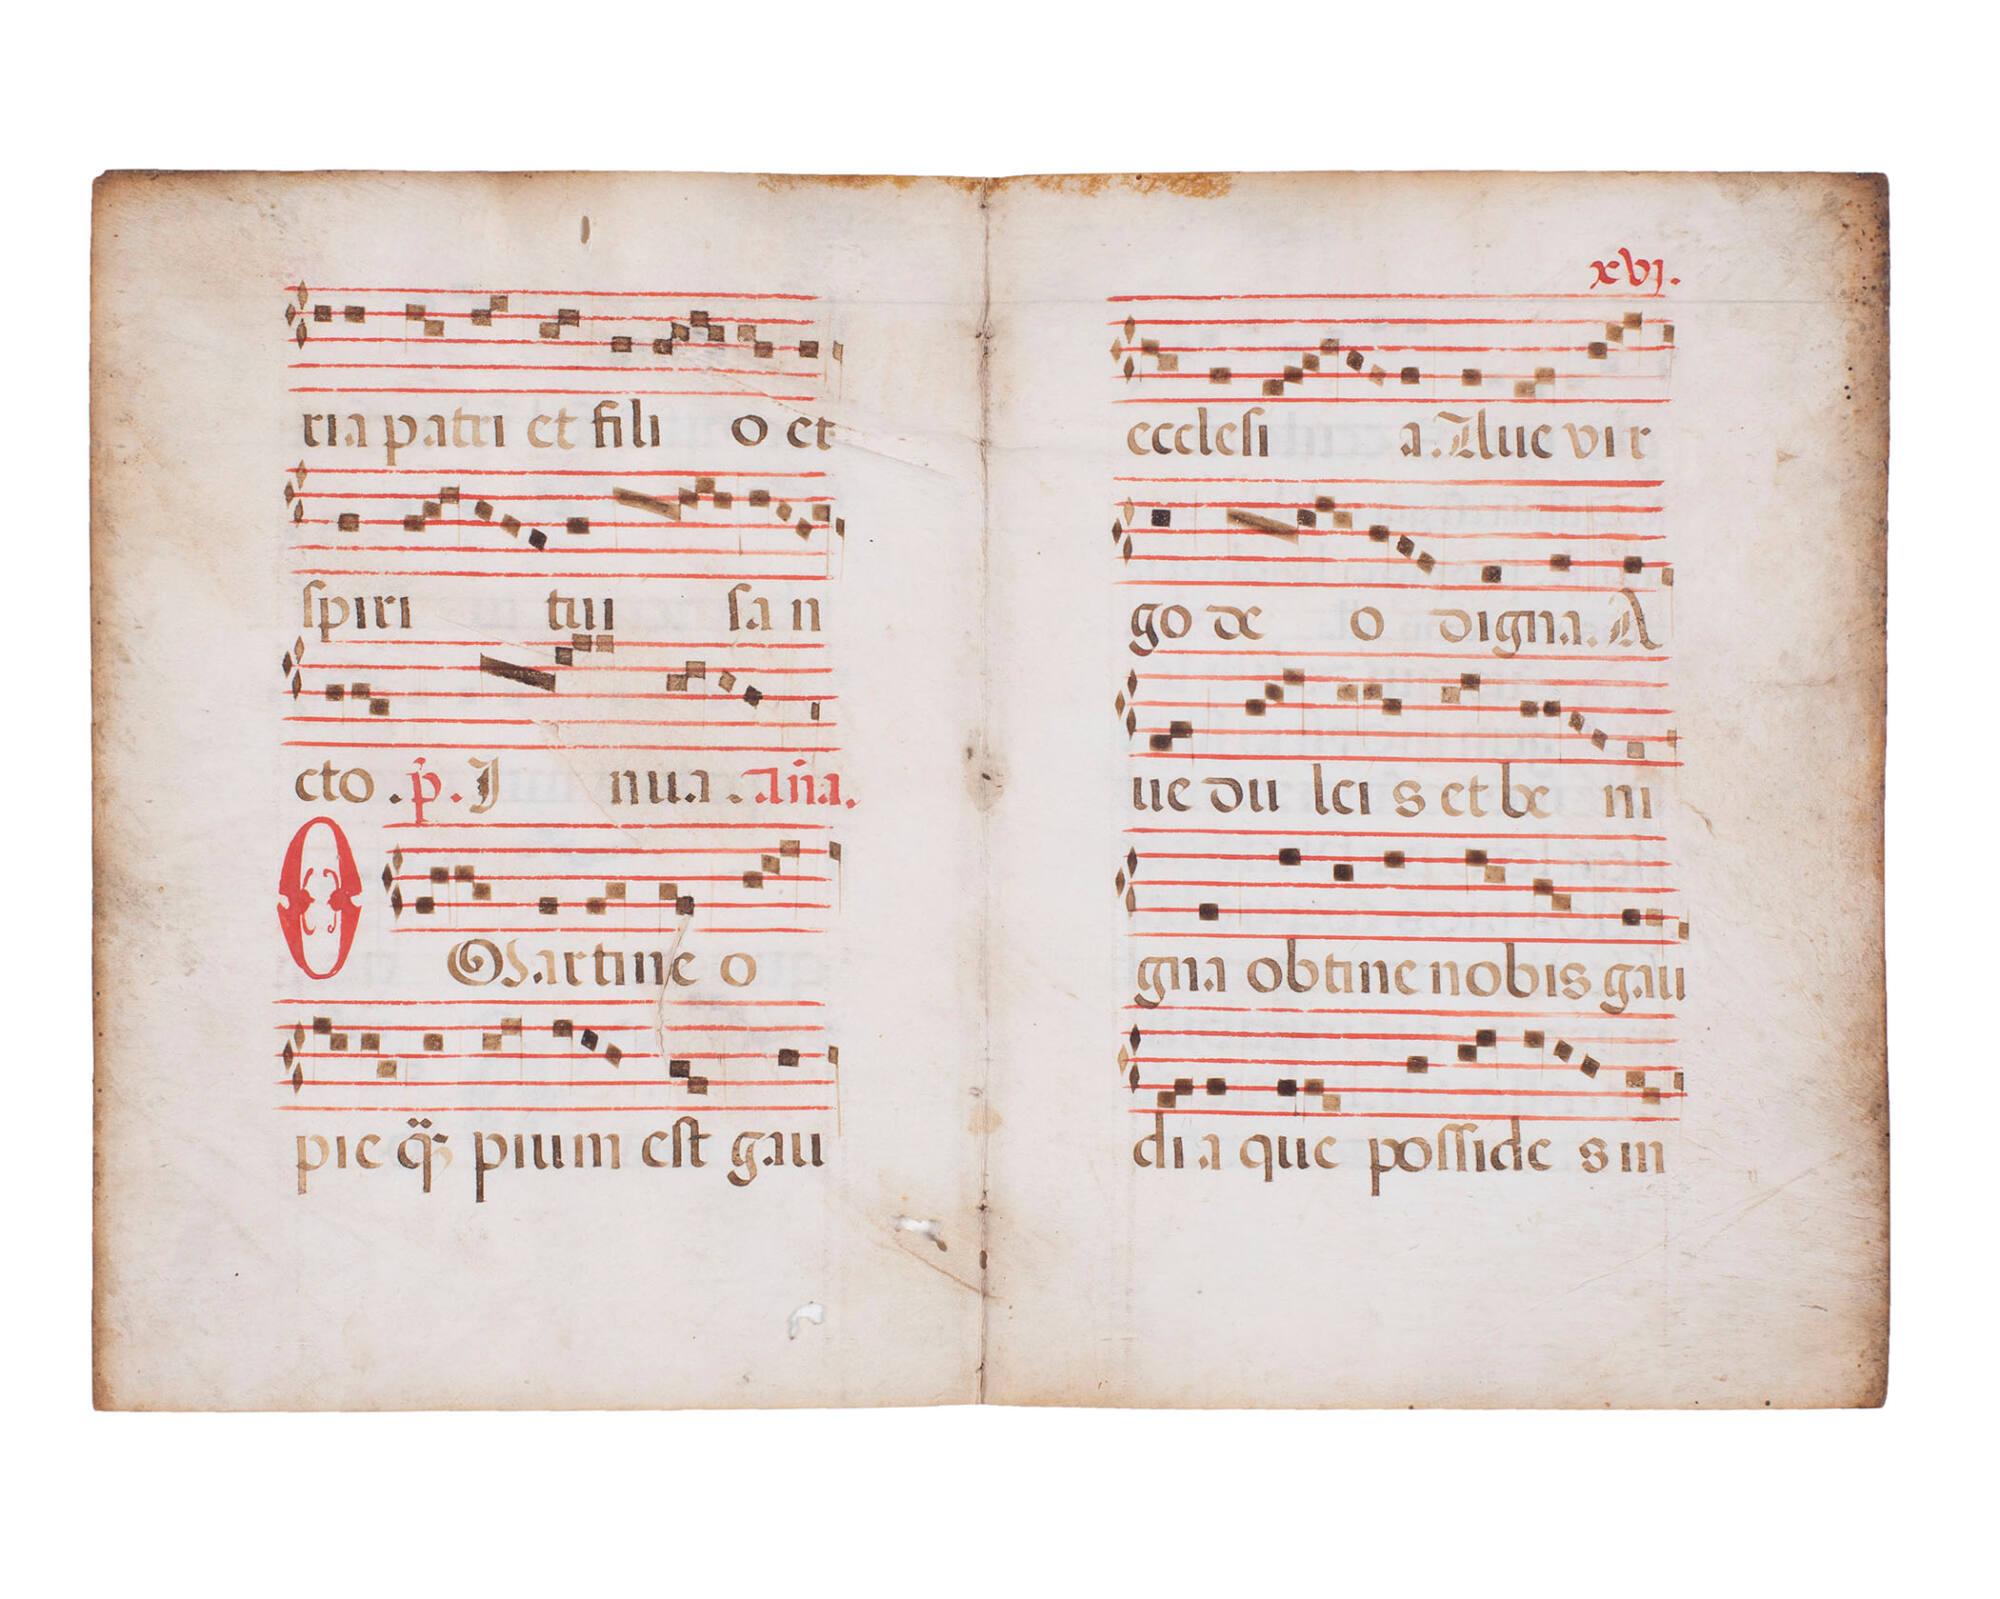 ria patri et fili o et
spiri tui san
cto . p̄ . I nua . aña.
O Martine o
pie q̈ȝ pium est gau
xvj.
ecclesi a. Aue vir
go de o digna. A
ue du lci s et be ni
gna obtine nobis gau
di a que posside s in